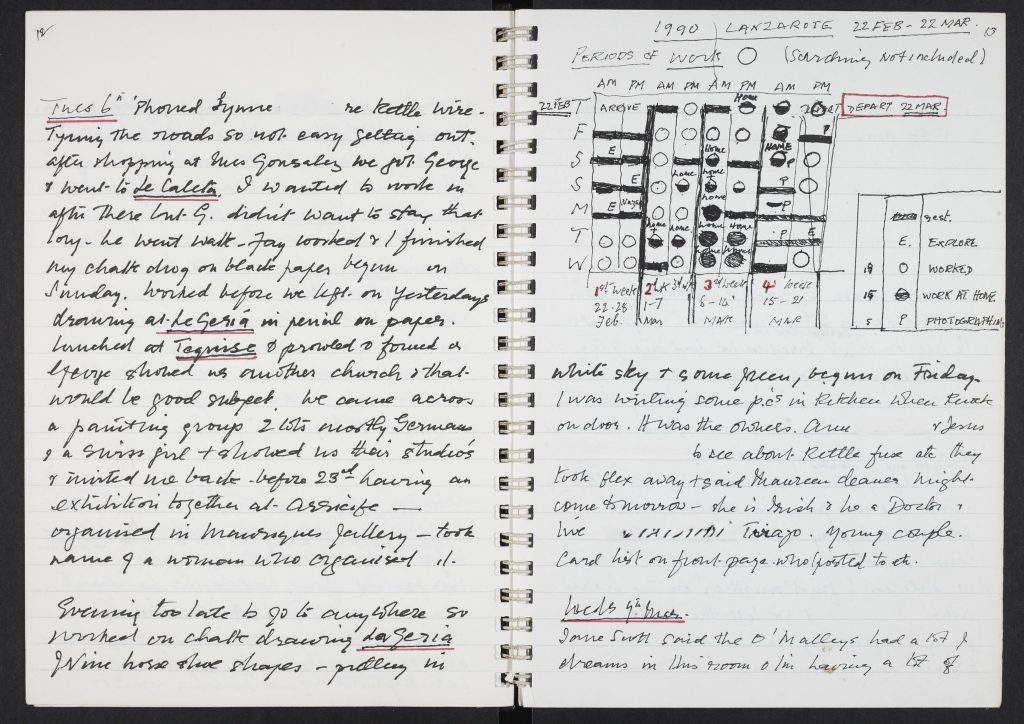 12
Tues 6th 'Phoned Lynne re Kettle wire.
Tyning the roads so not easy getting out.
after shopping at Mrs Gonsalez we got George
& went to La Caleta. I wanted to work in
after there but G. didn't want to stay that
long. he went walk - Fay worked & I finished
my chalk drwg on black paper begun on
Sunday. Worked before we left. on Yesterdays
drawing at La Geria in pencil on paper.
Lunched at Teguise & prowled & found a
George showed us another church & that
would be good subject. We came across
a painting group 2 lots mostly Germans
& a Swiss girl + showed us their studio's
& invited me back before 23rd having an
exhibition together at Arricife —
organised in gallery — took
name of a woman who organised it.
Evening too late to go to anywhere so
worked on chalk drawing La Geria
of vine horse shoe shapes — putting in
13
1990 LANZAROTE 22 FEB - 22 MAR.
PERIODS OF WORK (Searching not included)
AM PM AM PM AM PM AM PM
22 FEB T ARRIVE Home DEPART 22 MAR
F P
S E Home HOME P
S E home home P
M E home P
T home home home Home P E
W
1st week 2nd wk 3rd week 4th week
22-28 1-7 8-14 15-21
Feb Mar MAR MAR
rest.
E. EXPLORE
WORKED
15 WORK AT HOME
5 P PHOTOGRAPHING
white sky + some green, begun on Friday.
I was writing some p.cs in Kitchen when knock
on door. It was the owners. Ann & Jesus
to see about Kettle fuse etc they
took flex away + said Maureen cleaner might
come tomorrow - she is Irish & he a Doctor &
live Tinajo. Young couple.
Card list on front page who posted to etc.
Weds 7th Mar.
Jane Scott said the O'Malleys had a lot of
dreams in this room & I'm having a lot of